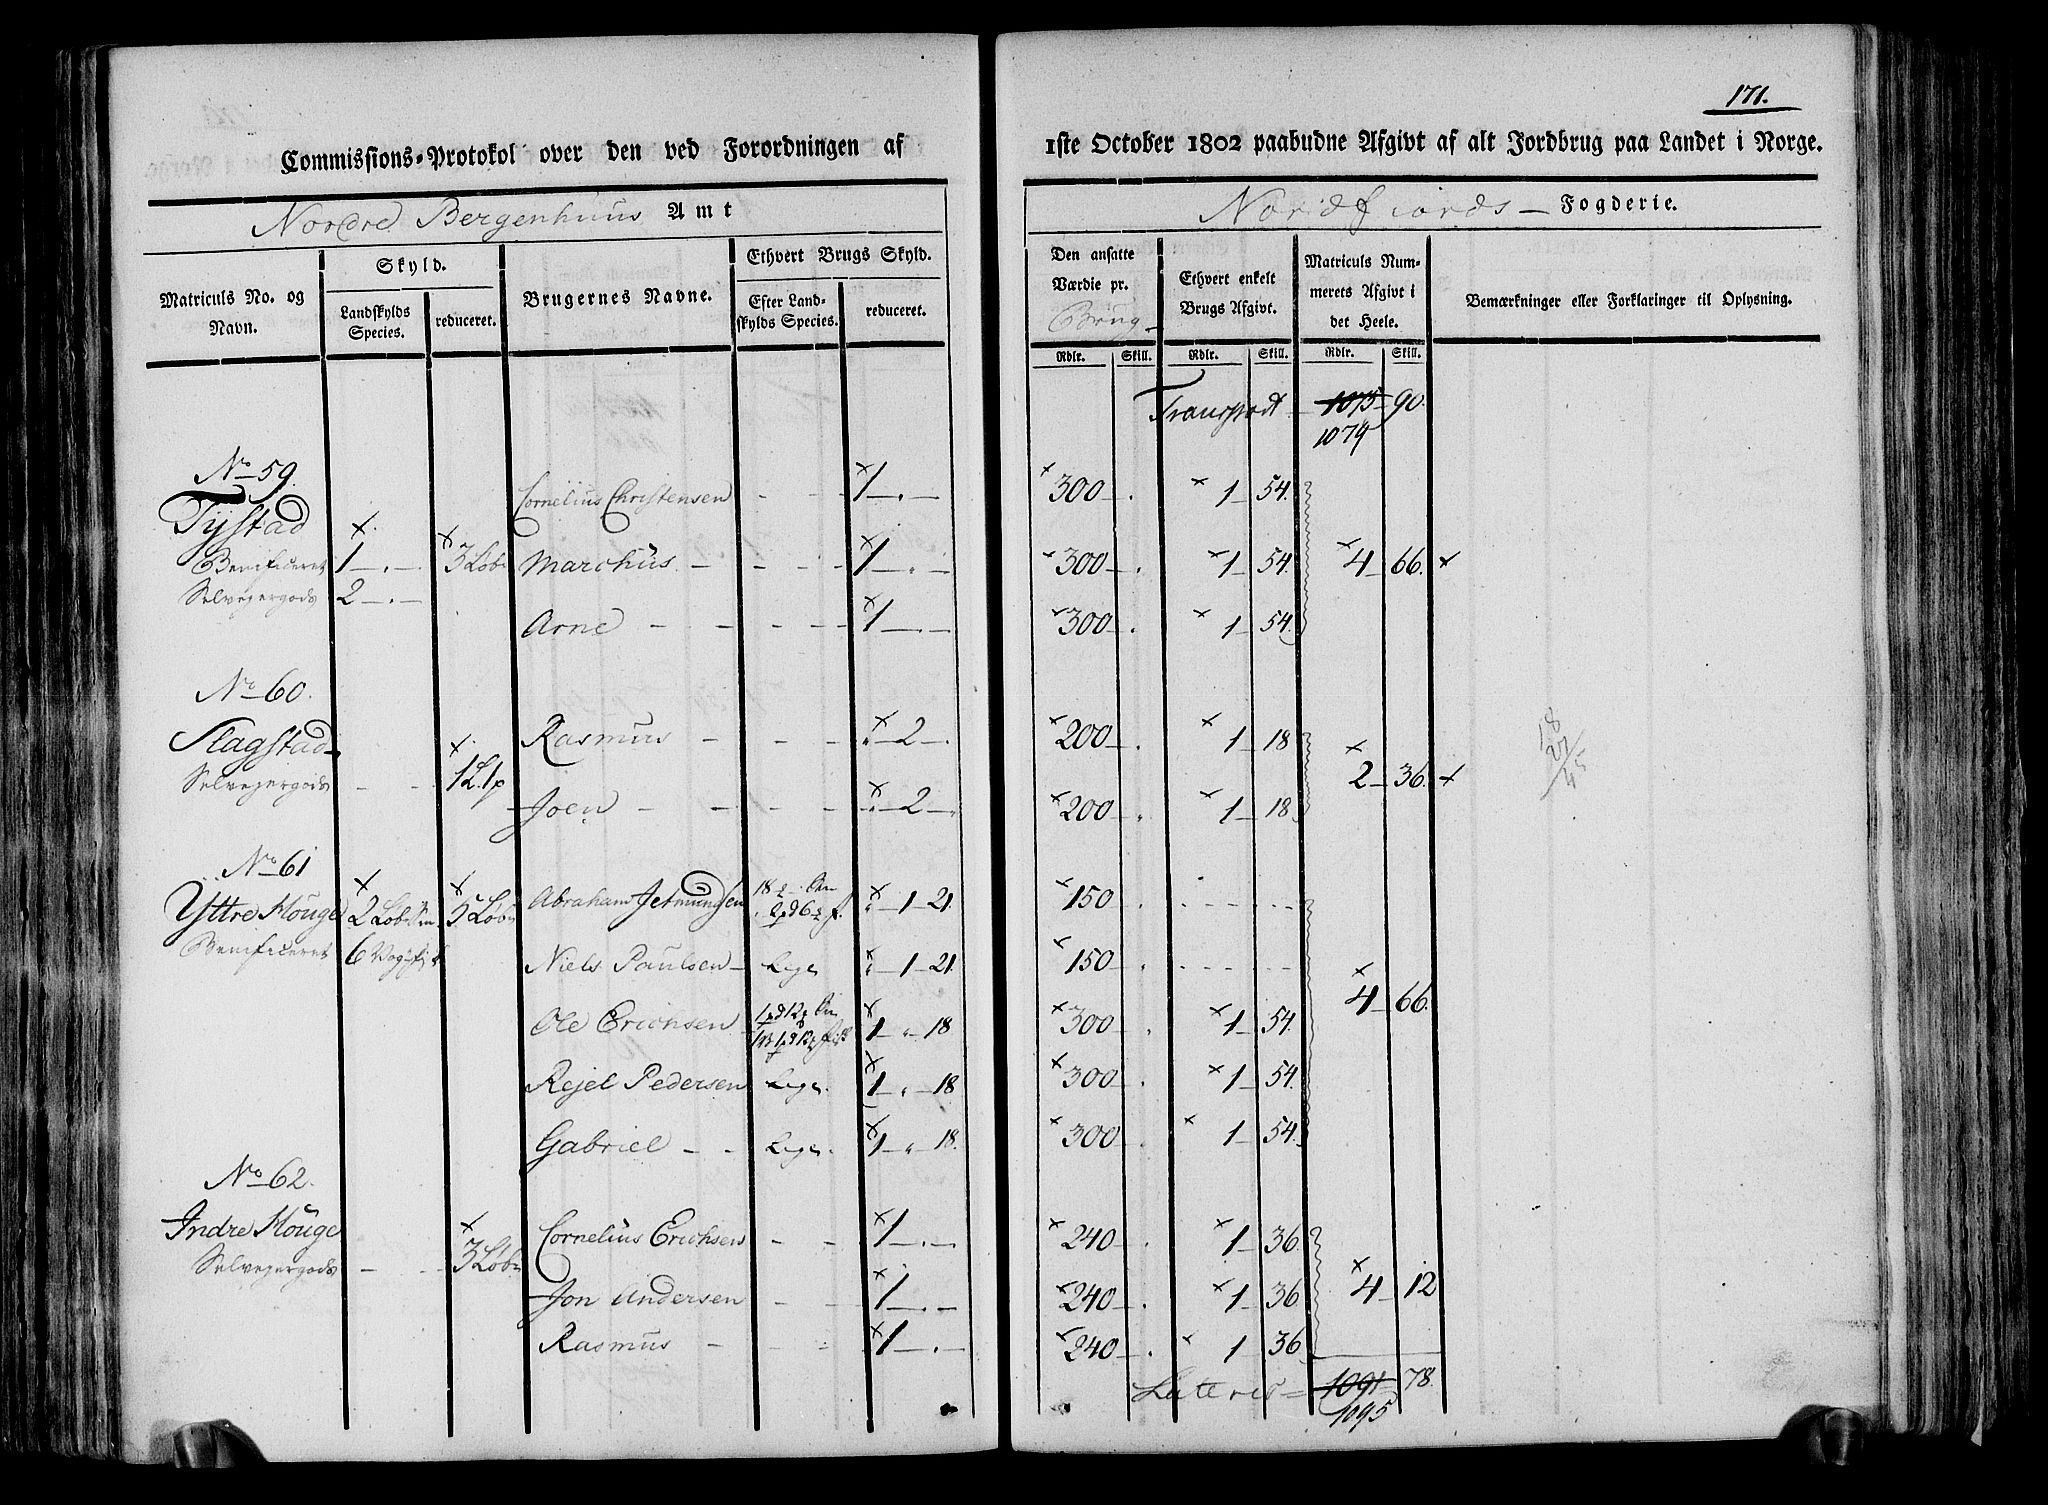 171.
Commissions-Protokol over den ved Forordningen af
1ste October 1802 paabudne Afgivt af alt Jordbrug paa Landet i Norge.
Nordre Bergenhuus Amt
Nordfiords – Fogderie.
Matriculs No. og Navn.
Skyld.
Landskylds Species.
reduceret.
Brugernes Navne.
Ethvert Brugs Skyld.
Efter Landskylds Species.
reduceret.
Den ansatte Værdie pr. Brug
Ethvert enkelt Brugs Afgivt.
Matriculs Nummerets Afgivt i det Heele.
Bemærkninger eller Forklaringer til Oplysning.
Rdlr. Skill. Rdlr. Skill. Rdlr. Skill.
Transport 1075 90.
1074
No 59.
Tystad
Cornelius Christensen – – × 1 – . – × 300 – . × 1 – 54.
Beneficeret 1 – . – × 3 Løb Marchus. – – – × 1 – . – × 300 – . × 1 – 54. × 4 – 66. ×
Selvejergods 2 – . –
Arne – – – – × 1 – . – × 300 – . × 1 – 54.
No 60.
Slagstad
Rasmus – – – × 2 – . × 200 – . × 1 – 18
Selvejergods – – × × 2 – 36. ×
Joen – – – – × 2 – . × 200 – . × 1 – 18.
18
No 61
Yttre Houge × 2 Løb × 5 Løb Abraham Jetmundsen × 1 – 21. × 150 –
Beneficeret 6
Niels Paulsen – Lige × 1 – 21. × 150 – .
× 4 – 66.
Ole Erichsen × 1 – 18 × 300 – . × 1 – 54.
Rejel Pedersen Lige. × 1 – 18 × 300 – . × 1 – 54.
Gabriel – – Lige. × 1 – 18. × 300 – . × 1 – 54.
No 62.
Indre Houge
Selvejergods – – × 3 Løb
Cornelius Erichsen – – × 1 – . – × 240 – . × 1 – 36.
Jon Andersen – – × 1 – . – × 240 – . × 1 – 36 × 4 – 12
Rasmus – – – × 1 – . – × 240 – . × 1 36
Lateris = 1091 78.
1095